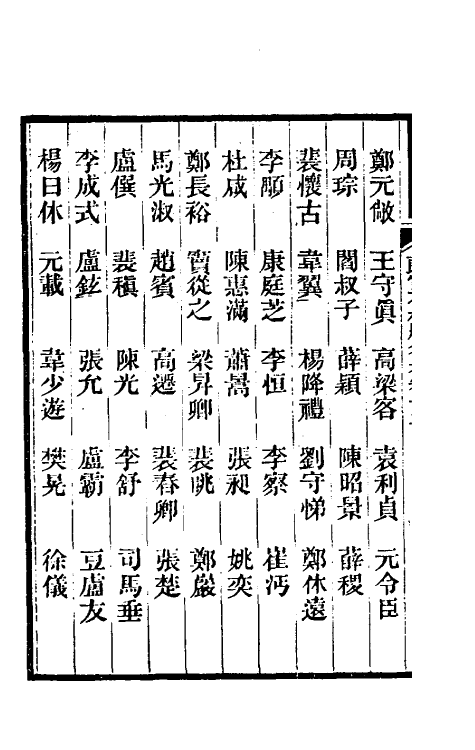 鄭元敞 王守眞 高梁客 袁利貞 元令臣
周琮 閻叔子 薛穎 陳昭景 薛稷
裴懷古 韋翼 楊降禮 劉守悌 鄭休遠
李顒 康庭芝 李恒 李察 崔沔
杜咸 陳惠滿 蕭嵩 張昶 姚奕
鄭長裕 竇從之 梁昇卿 裴眺 鄭巖
馬光淑 趙賓 高遷 裴春卿 張楚
盧僎 裴稹 陳光 李舒 司馬垂
李成式 盧鉉 張允 盧霸 豆盧友
楊日休 元載 韋少遊 樊晃 徐儀